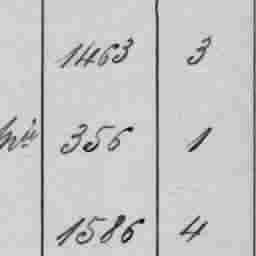 1463 3
356 1
1586 4